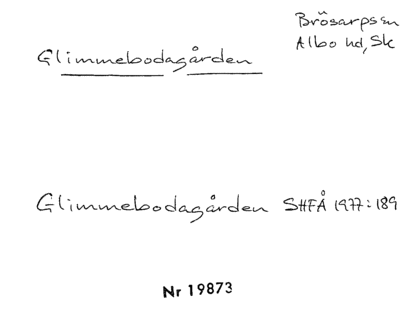 Brösarps sn
Albo hd, Sk
Glimmebodagården
Glimmebodagården SHFÅ 1977:189
Nr 19873